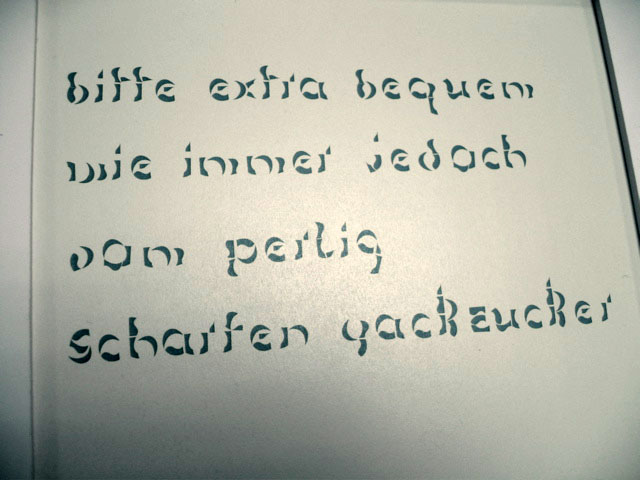 bitte extra bequem
wie immer jedoch
vom perlig
scharfen yackzucker